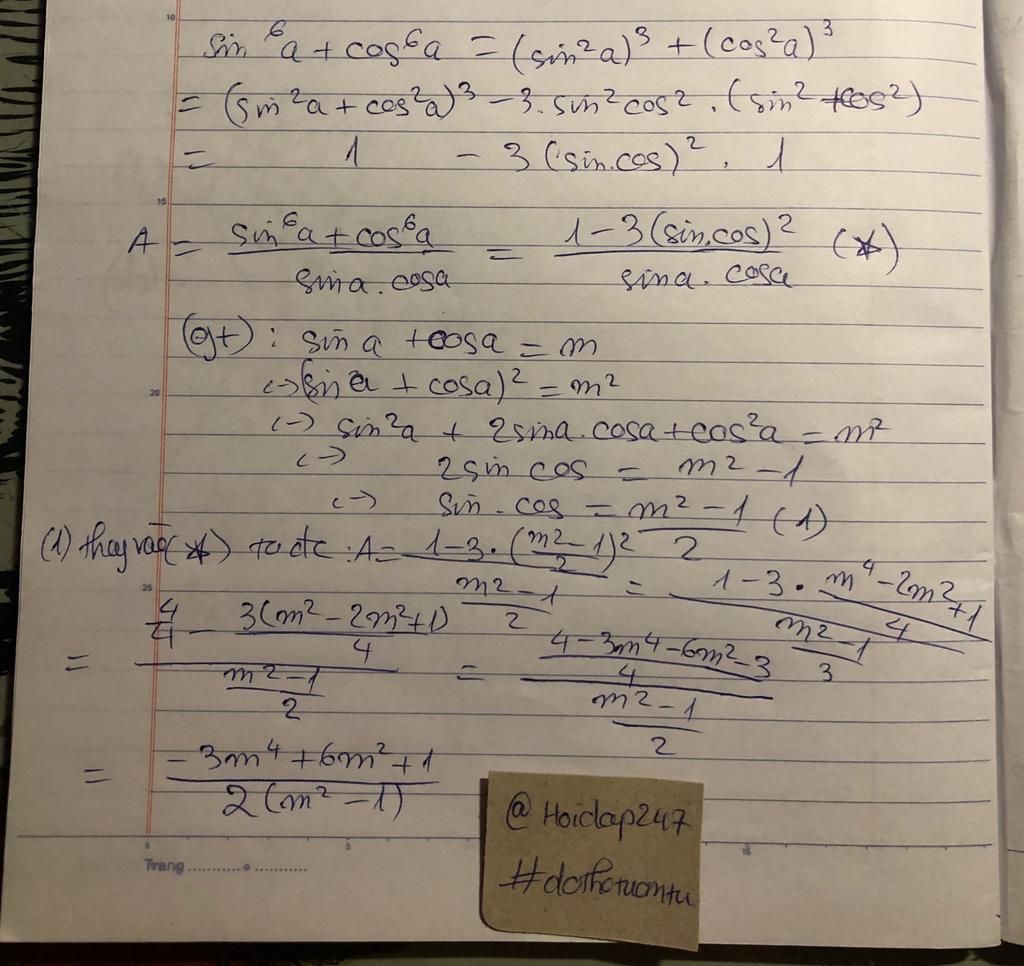 10
sin⁶a + cos⁶a = (sin²a)³ + (cos²a)³
= (sin²a + cos²a)³ - 3.sin²cos².(sin² + cos²)
= 1 - 3(sin.cos)². 1
15
A = (sin⁶a + cos⁶a)/(sina.cosa) = (1-3(sin.cos)²)/(sina.cosa) (*)
(gt): sina + cosa = m
20
<-> (sina + cosa)² = m²
<-> sin²a + 2sina.cosa + cos²a = m²
<-> 2sin cos = m² - 1
<-> sin.cos = (m² - 1)/2 (1)
(1) thay vào (*) ta đc: A = (1-3.((m²-1)/2)²)/((m²-1)/2) = (1-3.(m⁴-2m²+1)/4)/((m²-1)/3)
25
= (4/4 - 3(m²-2m²+1)/4)/((m²-1)/2) = ((4-3m⁴-6m²-3)/4)/((m²-1)/2)
= (-3m⁴+6m²+1)/(2(m²-1))
@Hoidap247
#dothotuomtu
0 5 15
Trang